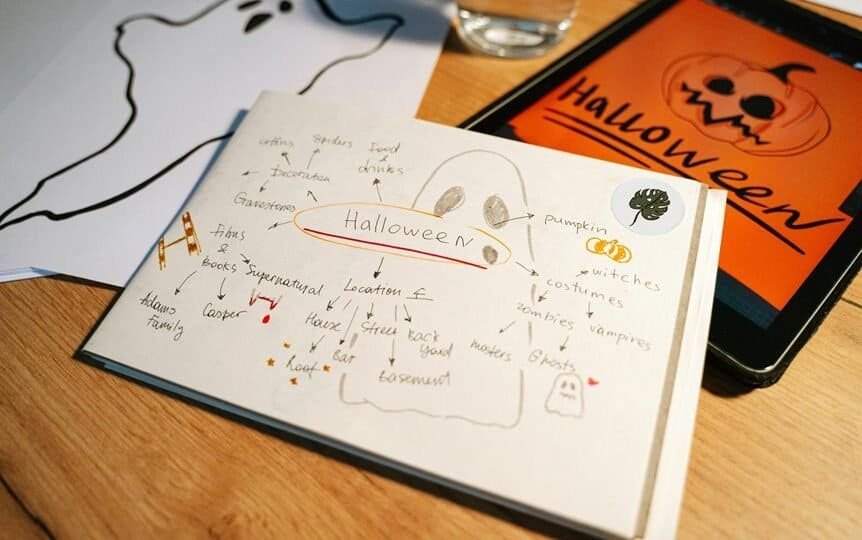 coffins spiders Food
&
drinks
Decoration
Gravestones
Halloween
pumpkin
Films
&
Books
Supernatural
Location
witches
costumes
Adams
Family
Casper
House
Street
Back
Yard
zombies
vampires
Roof
Bar
Basement
Ghosts
Halloween